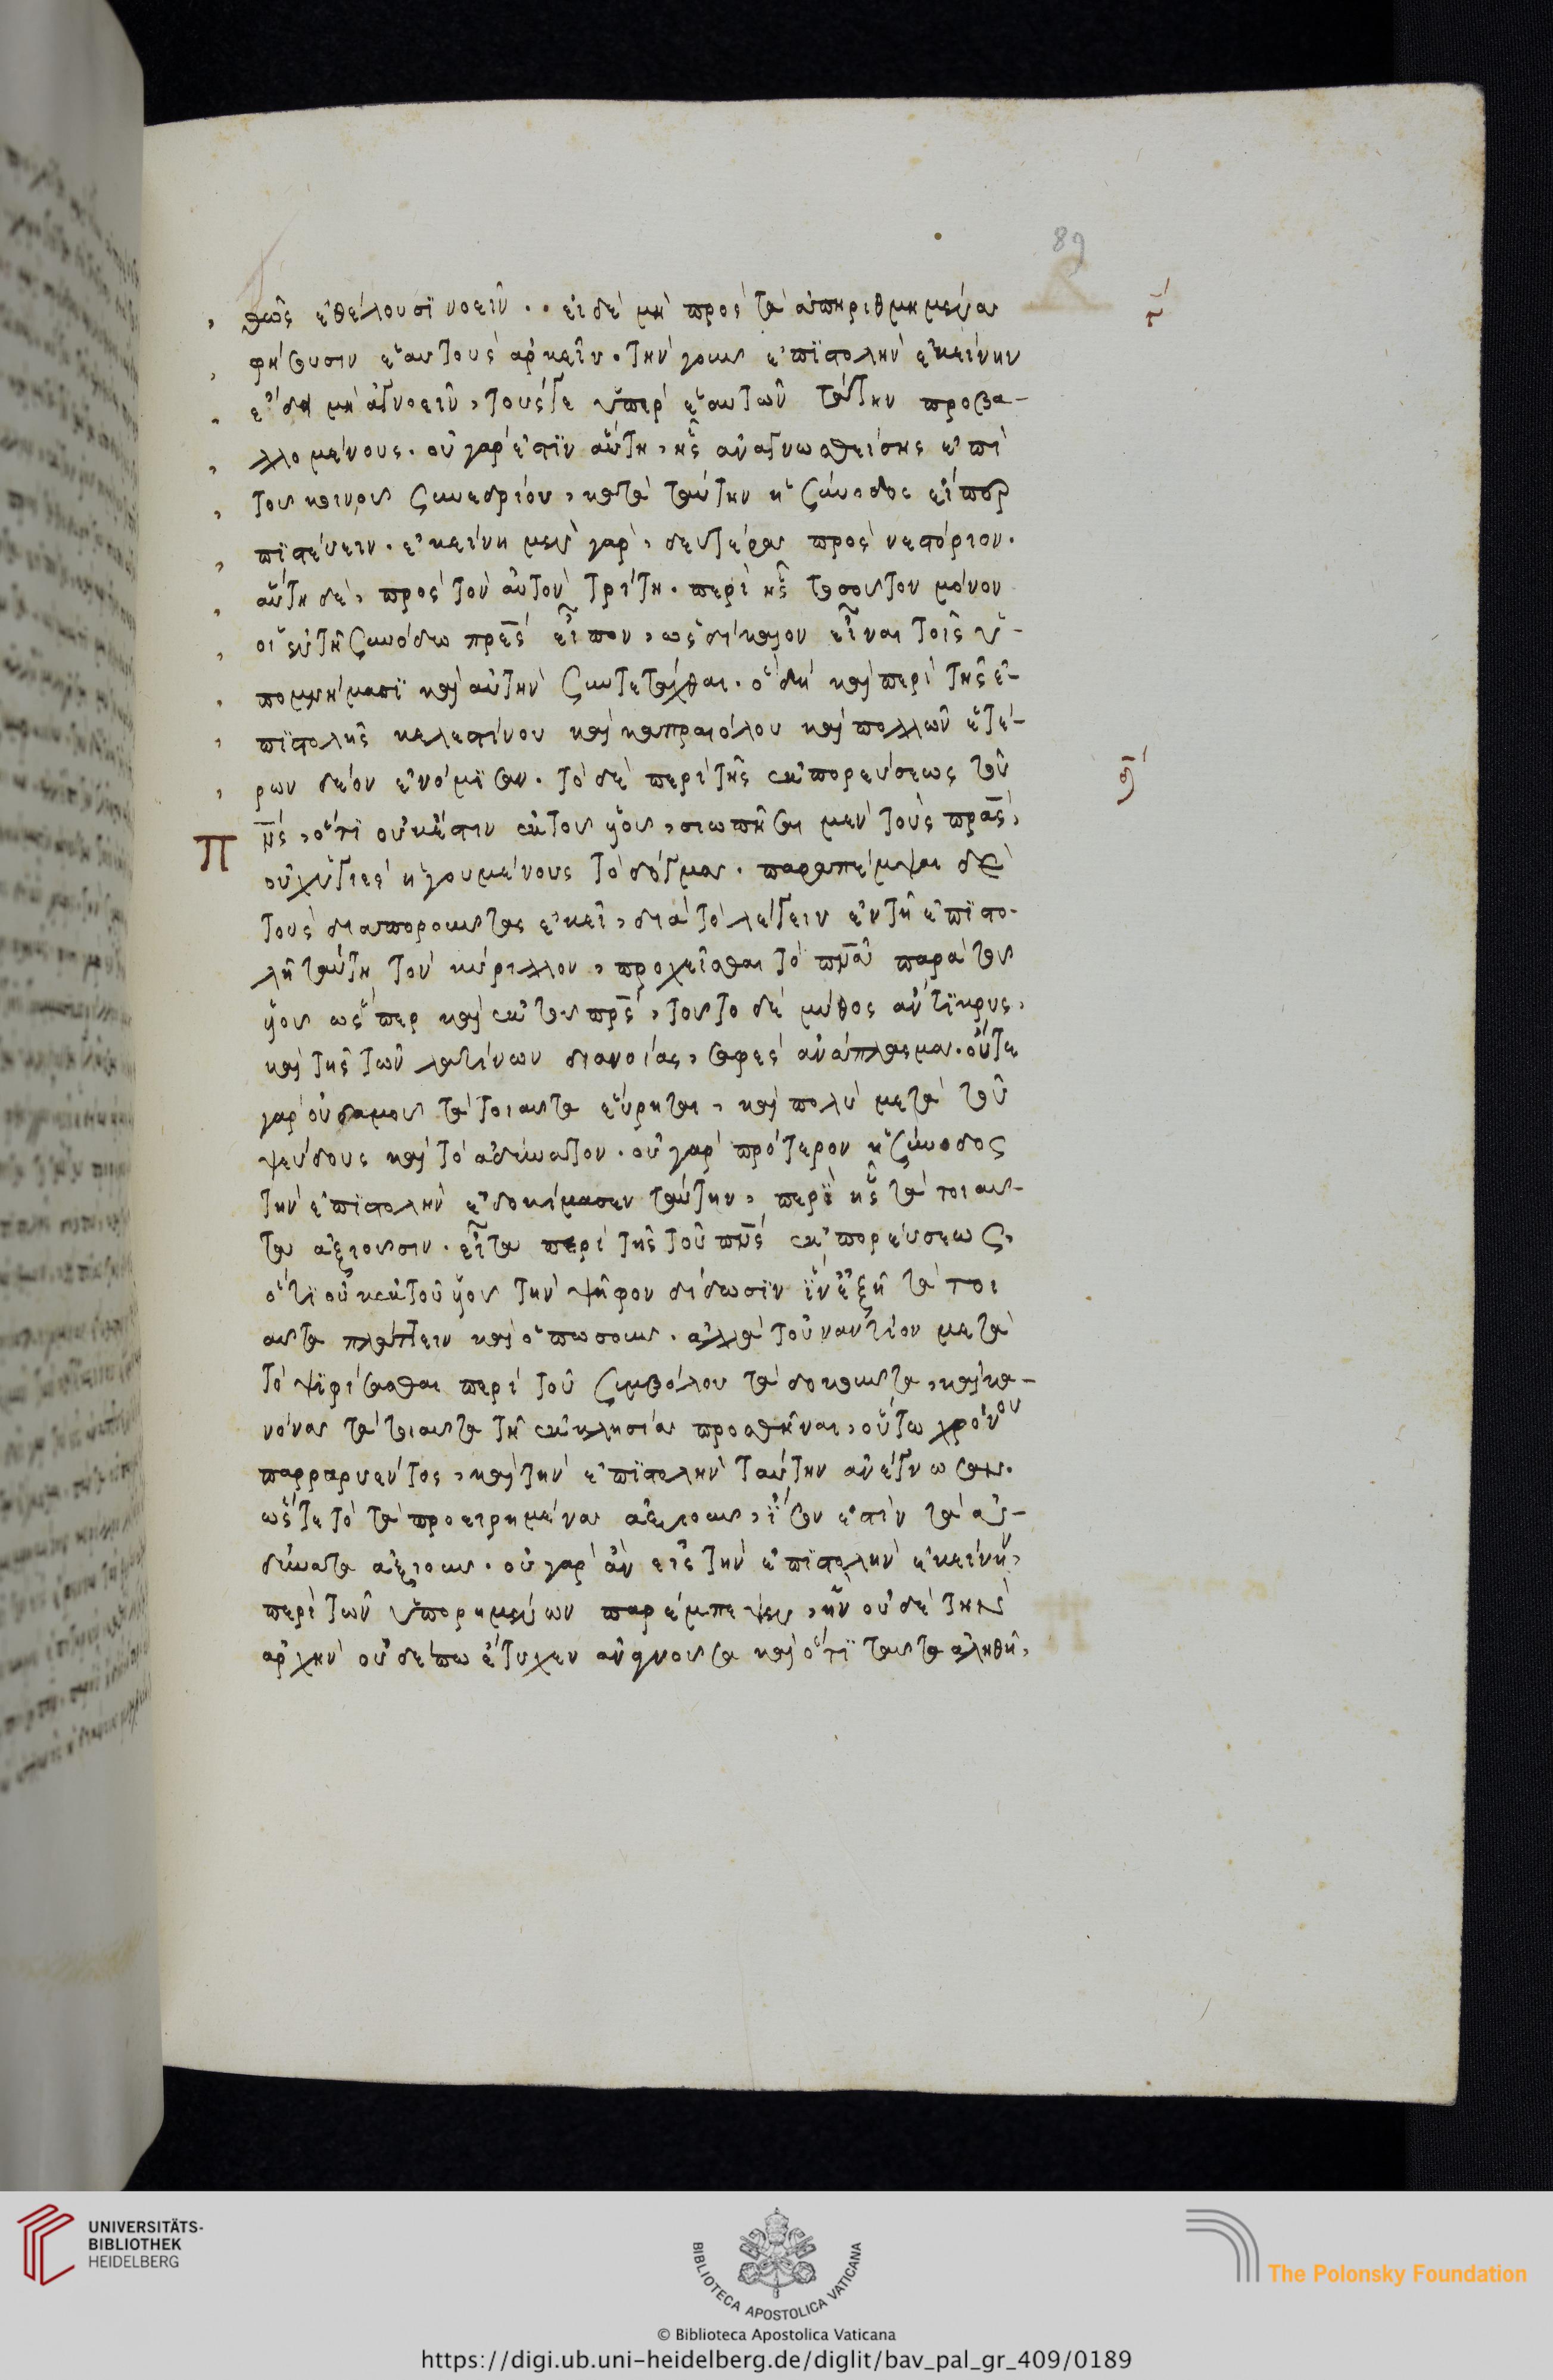 89
θῶς ἐθέλουσϊ νοεῖν. . εἰ δὲ μὴ πρὸς τὰ ἀπηριθμημένα
φήσουσιν ἑαυτοὺς ἀρκεῖν. τὴν γοῦν ἐπϊστολὴν ἐκείνην
ἔδει μὴ ἀγνοεῖν, τούς γε ὑπὲρ ἑαυτῶν ταύτην προβα-
λλομένους. οὐ γάρ ἐστϊν αὕτη, ἧς ἀναγνωσθείσης ἐπὶ
τοῦ κοινοῦ συνεδρίου, κατὰ ταύτην ἡ σύνοδος εἶπε
πϊστεύειν. ἐκείνη μὲν γὰρ, δευτέρα πρὸς νεστόριον.
αὕτη δὲ, πρὸς τὸν αὐτὸν τρίτη. περὶ ἧς τοσοῦτον μόνον
οἱ ἐν τῆ συνόδω πρ̅ες εἶπον, ὡς δίκαιον εἶναι τοῖς ὑ-
πομνήμασϊ καὶ αὐτὴν συντετάχθαι. ὃ δὴ καὶ περὶ τῆς ἐ-
πϊστολῆς κελεστίνου καὶ καπραιόλου καὶ πολλῶν ἑτέ-
ρων δέον ἐνόμϊσαν. τὸ δὲ περὶ τῆς ἐκπορεύσεως τοῦ
Π ν̅ς, ὅτϊ οὐκ ἔστιν ἐκ τοῦ υἱοῦ, σιωπῆσαι μὲν τοὺς πρα̅ς,
οὐχ ὑγιὲς ἡγουμένους τὸ δόγμα. παραπέμψαι δὲ
τοὺς διαποροῦντας ἐκεῖ, διὰ τὸ λέγειν ἐν τῆ ἐπϊστο-
λῆ ταύτη τὸν κύριλλον, προχεῖσθαι τὸ πν̅α παρὰ τοῦ
υἱοῦ ὥσπερ καὶ ἐκ τοῦ πρ̅ς, τοῦτο δὲ μύθος ἀντϊκρυς,
καὶ τῆς τῶν λατίνων διανοίας, σαφὲς ἀνάπλασμα. οὔτε
γὰρ οὐδαμοῦ τὰ τοιαῦτα εὕρηται, καὶ πολὺ μετὰ τοῦ
ψεύδους καὶ τὸ ἀδύνατον. οὐ γὰρ πρότερον ἡ σύνοδος
τὴν ἐπϊστολὴν ἐδοκίμασεν ταύτην, περὶ ἧς τὰ τοιαῦ-
τα ἀξιοῦσιν. εἶτα περὶ τῆς τοῦ πν̅ς ἐκπορεύσεως,
ὅτϊ οὐκ ἐκ τοῦ υἱοῦ τὴν ψῆφον δίδωσϊν ἵν' ἐξῆ τὰ τοι
αῦτα πλάττειν καὶ ὁπωσοῦν. ἀλλὰ τοὐναντίον μετὰ
τὸ ψϊφίσασθαι περὶ τοῦ συμβόλου τὰ δοκοῦντα, καὶ κα-
νόνας τὰ τοιαῦτα τῆ ἐκκλησία προσθῆναι, οὕτω χρόνου
παρραρυέντος, καὶ τὴν ἐπϊστολὴν ταύτην ἀνέγνωσαν.
ὥστε τὸ τὰ προειρημένα ἀξιοῦν, ἴσον ἐστὶν τὰ ἀ-
δύνατα ἀξιοῦν. οὐ γὰρ ἂν εἰς τὴν ἐπϊστολὴν ἐκείνην,
περὶ τῶν ὑπορημένων παρέμπεψεν, ἣν οὐδὲ τὴν
ἀρχὴν οὐδέπω ἔτυχεν ἀναγνοῦσα καὶ ὅτϊ ταῦτα ἀληθῆ,
UNIVERSITÄTS-
BIBLIOTHEK
HEIDELBERG
BIBLIOTECA APOSTOLICA VATICANA
The Polonsky Foundation
© Biblioteca Apostolica Vaticana
https://digi.ub.uni-heidelberg.de/diglit/bav_pal_gr_409/0189